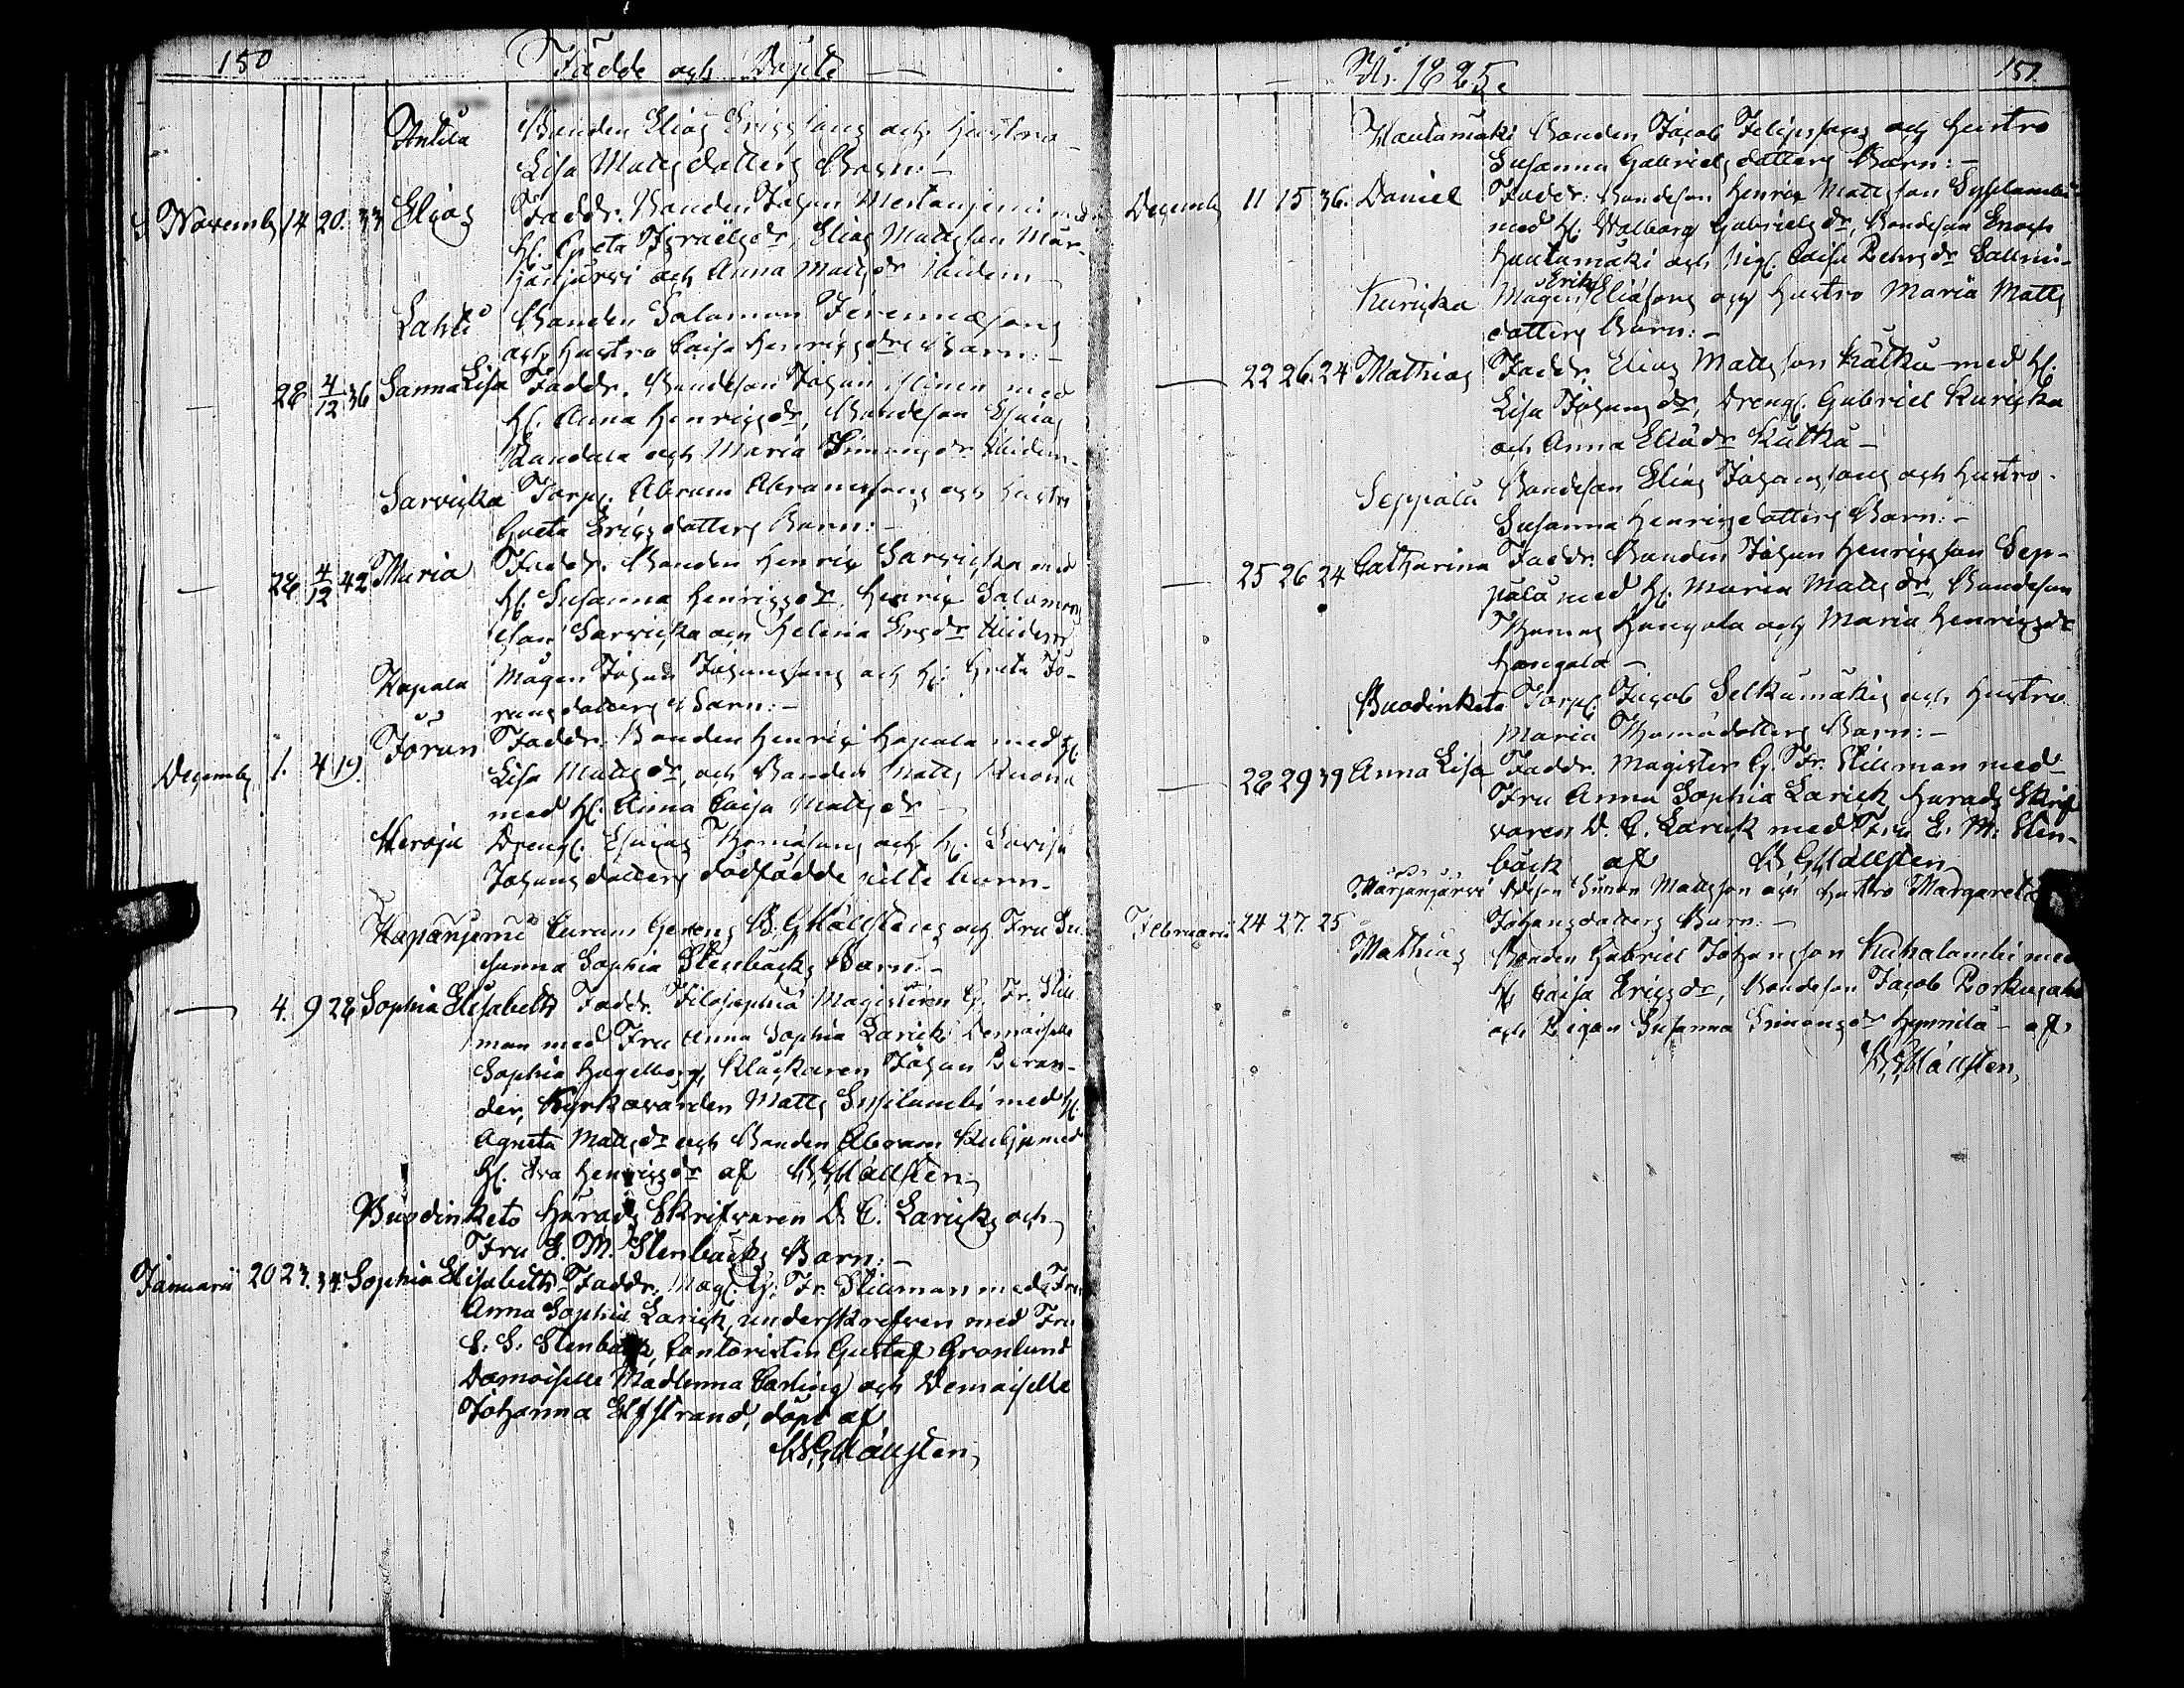 150
Födde och Döpte
Anttila Bonden Elias Ericssons och hustru
Lisa Matts dotters Barn:
Novemb 14 20. 33 Elias Faddr. Bonden Johan Mertaniemi med
H. Greta Israelsdr, Elias Mattsson Mär-
jänjärvi och Anna Mattsdr ibidem
Lahti Bonden Salomon Jeremiæsons
och Hustru Caisa Henricsdrs Barn:
28 4/12 36 Sanna Lisa Faddr. Bondeson Johan med
H. Anna Henricsdr, Bondeson Esaias
Randala och Maria Simonsdr ibidem
Sarvicka Torp. Abram Abramssons och hustru
Greta Erics dotters Barn:
28 4/12 42 Maria Faddr. Bonden Henric Sarvicka med
H. Susanna Henricsdr. Henric Salomons
son Sarvicka och Helena Ersdr ibidem
Hapala Mågen Johan Johanssons och H. Greta Jö-
rans dotters Barn:
Decemb 1. 4 19. Jöran Faddr. Bonden Henric Hapala med H.
Lisa Mattsdr, och Bonden Matts Kuona
med H. Anna Caisa Mattsdr
Heroja Dreng. Esaias Thomæsons och H. Lovisa
Johans dotters dödfödde äkta barn.
Hapaniemi Curam Gerens B. G. Hällstens och Fru Su-
sanna Sophia Stenbäcks Barn:
4. 9 28 Sophia Elisabeth Faddr. Filosophiæ Magistern G. Fr. Still-
man med Fru Anna Sophia Larick, Demoiselle
Sophia Hagelberg, Klockaren Johan Beran-
der, Kyrkovärden Matts Susilambi med H.
Agneta Mattsdr och Bonden Abram Kuhj med
H. Eva Henricsdr af B. G. Hällsten
Buodinketo Härads Skrifvaren D. C. Laricks och
Fru E. M. Stenbäcks Barn:
Januarii 20 27. 34. Sophia Elisabeth Faddr. Mag. G. Fr. Stillman med Fru
Anna Sophia Larick, underskrefven med Fru
S. S. Stenbäck, Cantoristen Gustaf Grönlund
Demoiselle Madlenna Carling och Demoiselle
Johanna Elfstrand, döpt af
B. G. Hällsten
År 1825.
151.
Hautamäki Bonden Jacob Filipssons och Hustru
Susanna Gabriels dotters Barn:
Decemb 11 15 36. Daniel Faddr: Bondeson Henric Mattsson Sysilambi
med H. Walborg Gabrielsdr, Bondeson Enoch
Hautamäki och Pig. Caisa Pehrsdr Salmi-
Kuricka Mågen Erik Eliæsons och Hustru Maria Matts
dotters Barn:
22 26. 24 Mathias Faddr. Elias Mattsson Kätkä med H.
Lisa Johans dr, Dreng. Gabriel Kuricka
och Anna Eliædr Kätkä
Seppälä Bondeson Elias Johanssons och Hustru
Susanna Henricsdotters Barn:
25 26 24 Catharina Faddr. Bonden Johan Henricsson Sep-
pälä med H. Maria Mattsdr, Bondeson
Thomas Hangala och Maria Henricsdr
Hangala
Buodinketo Torp. Jacob Selkämäkis och Hustru
Maria Thomædotters Barn:
28 29 39 Anna Lisa Faddr. Magister G. Fr. Stillman med
Fru Anna Sophia Larick, Härads Skrif
varen D. C. Larick med Fru E. M. Sten-
bäck af B. G. Hällsten
Märjänjärvi Simon Mattsson och Hustru Margareta
Februarii 24 27. 25 Johansdotters Barn:
Mathias Bonden Gabriel Johansson Kuhalambi med
H. Caisa Ericsdr, Bondeson Jacob Porkusalo
och Pigan Susanna Simonsdr Hynnilä af
B. G. Hällsten